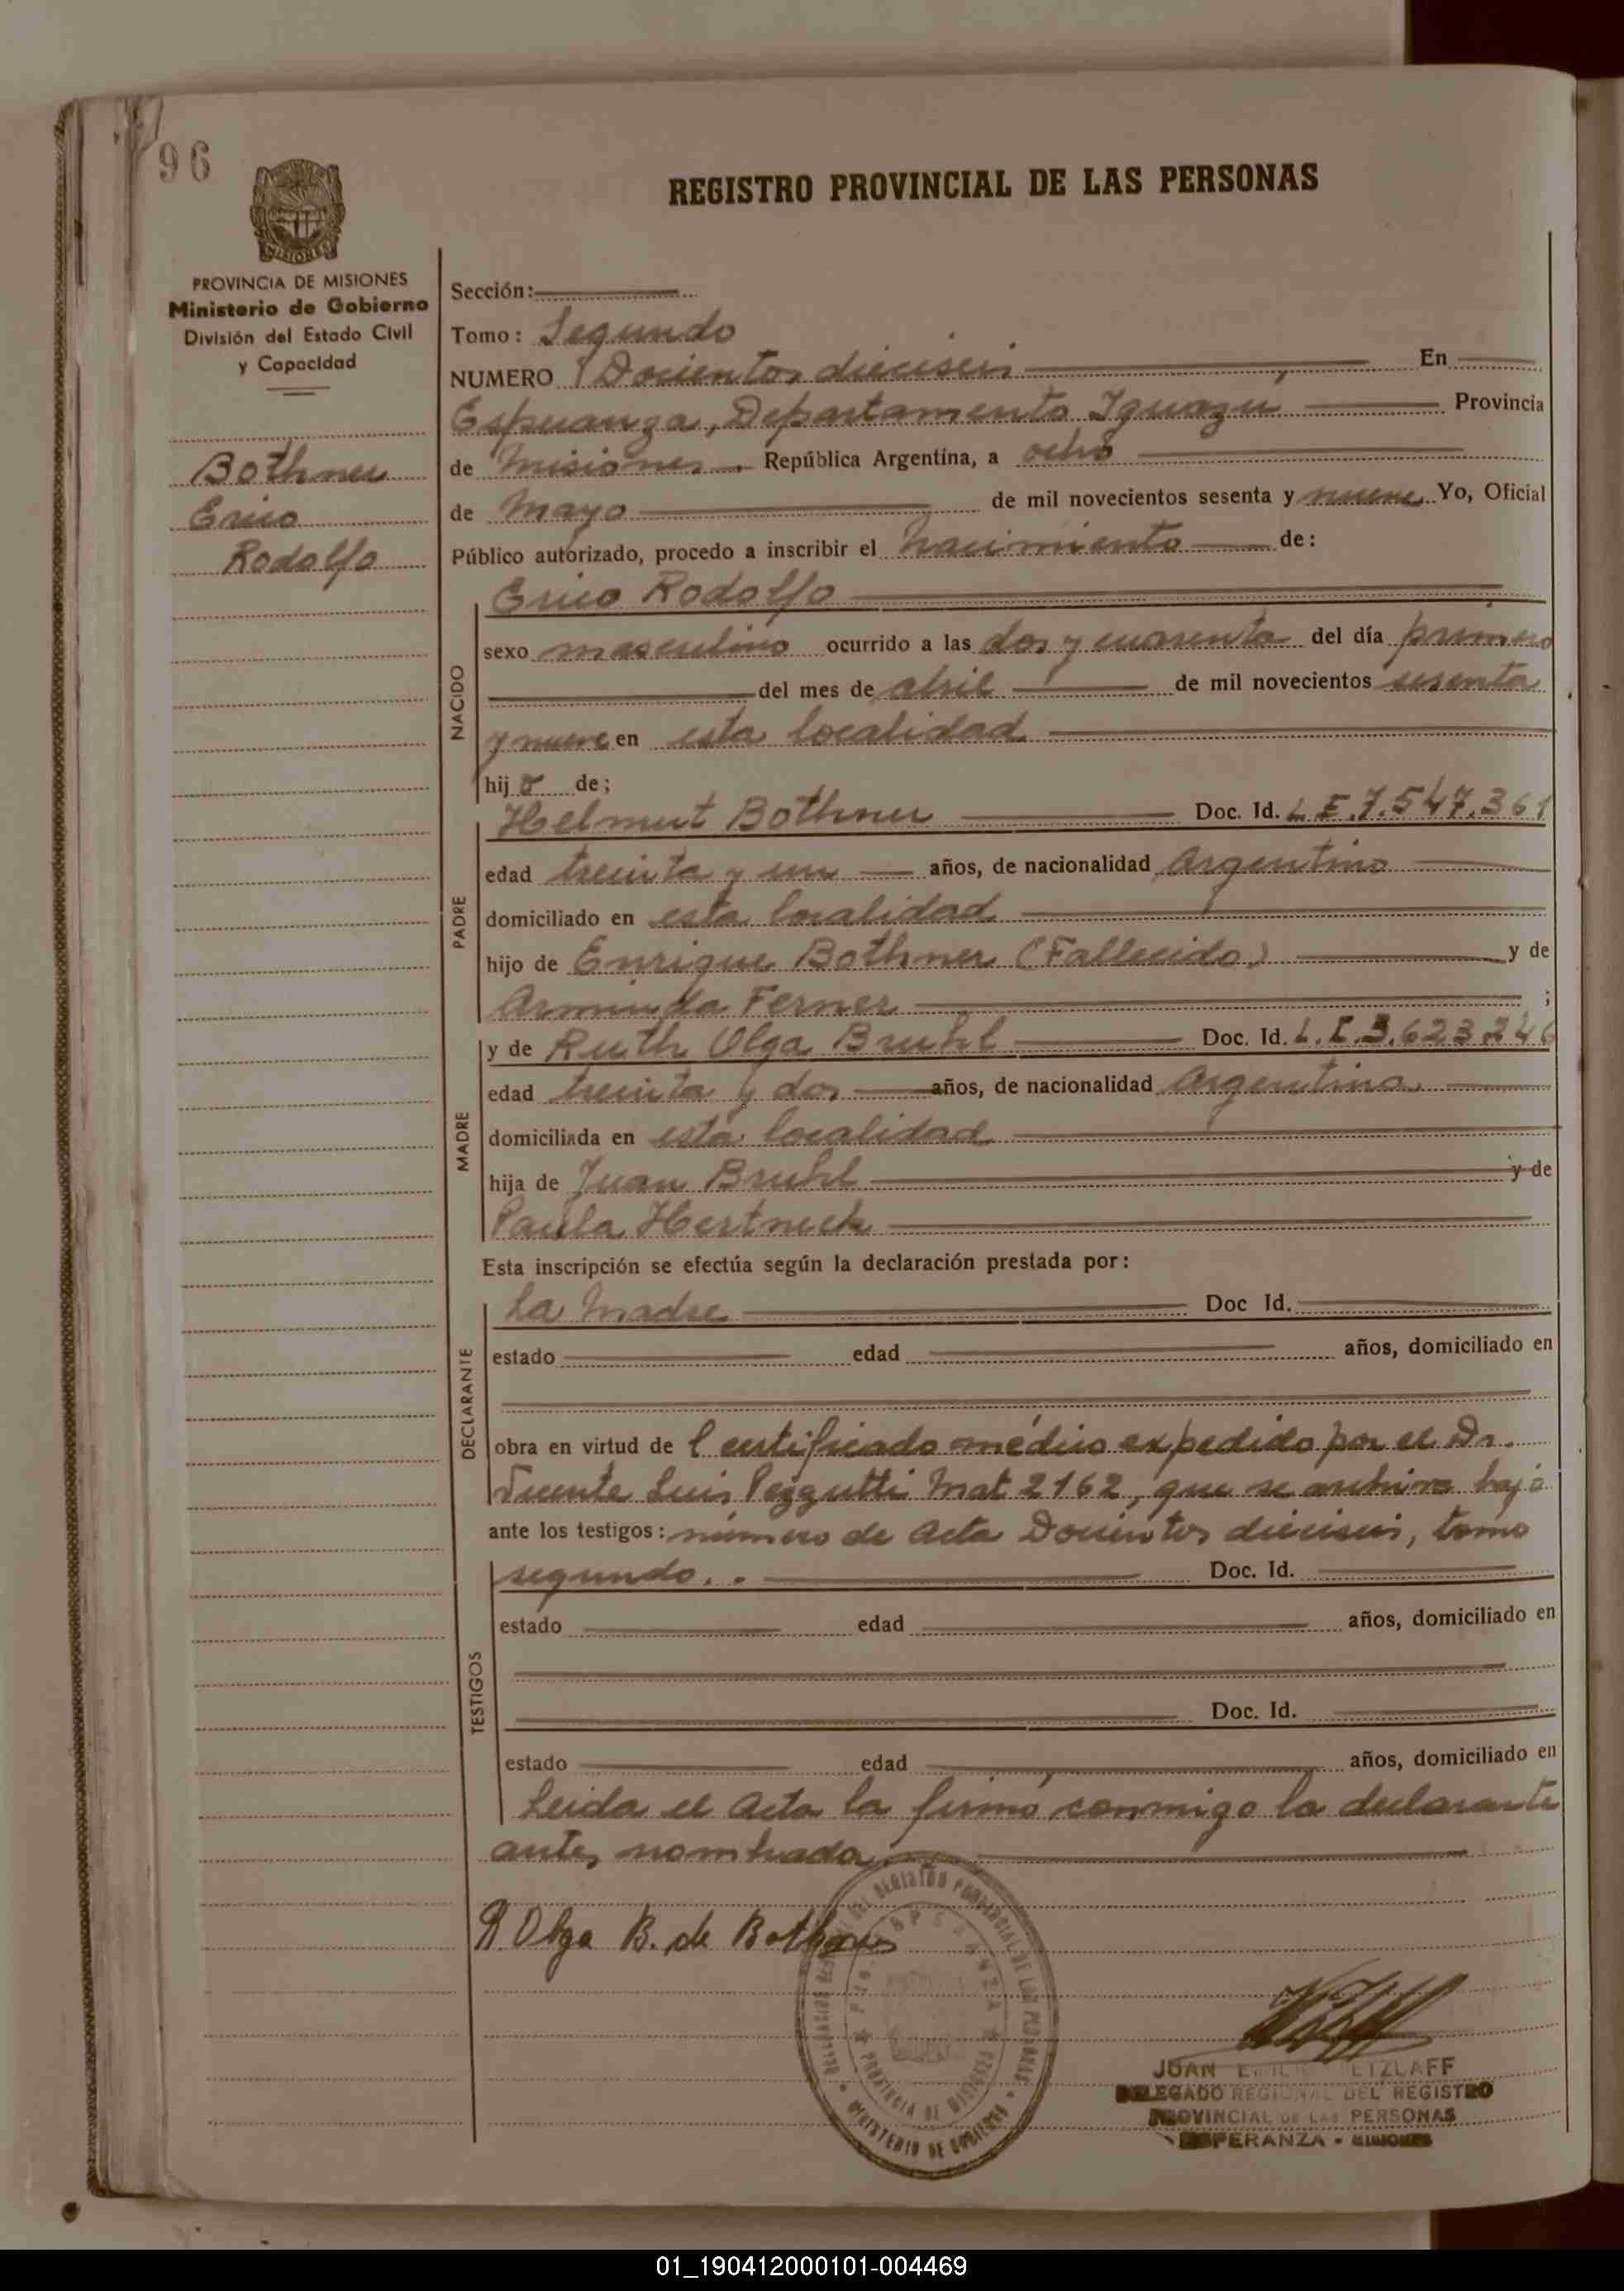 96
REGISTRO PROVINCIAL DE LAS PERSONAS
MISIONES
PROVINCIA DE MISIONES
Ministerio de Gobierno
División del Estado Civil
y Capacidad
Bothner
Erico
Rodolfo
Sección:
Tomo: Segundo
NUMERO Docientos dieciseis En
Esperanza, Departamento Iguazú, Provincia
de Misiones, República Argentina, a ocho
de Mayo de mil novecientos sesenta y nueve Yo, Oficial
Público autorizado, procedo a inscribir el nacimiento de:
NACIDO
Erico Rodolfo
sexo masculino ocurrido a las dos y cuarenta del día primero
del mes de abril de mil novecientos sesenta
y nueve en esta localidad
hijo de;
PADRE
Helmut Bothner Doc. Id. L.E.7.547.361
edad treinta y un años, de nacionalidad Argentino
domiciliado en esta localidad
hijo de Enrique Bothner (Fallecido) y de
Arminda Ferner ;
MADRE
y de Ruth Olga Bruhl Doc. Id. L.C.3.623.246
edad treinta y dos años, de nacionalidad Argentina
domiciliada en esta localidad
hija de Juan Bruhl y de
Paula Hertneck
Esta inscripción se efectúa según la declaración prestada por:
DECLARANTE
La Madre Doc Id.
estado edad años, domiciliado en
obra en virtud de Certificado médico expedido por el Dr.
Vicente Luis Pezzutti Mat 2162, que se archiva bajo
ante los testigos: número de Acta Docientos dieciseis, tomo
TESTIGOS
segundo.. Doc. Id.
estado edad años, domiciliado en
Doc. Id.
estado edad años, domiciliado en
Leida el Acta la firmó conmigo la declarante
antes nombrada
R Olga B. de Bothner
DEL REGISTRO PROVINCIAL DE LAS PERSONAS
PROVINCIA DE MISIONES
MINISTERIO DE GOBIERNO
JUAN EMILIO RETZLAFF
DELEGADO REGIONAL DEL REGISTRO
PROVINCIAL DE LAS PERSONAS
ESPERANZA - MISIONES
01_190412000101-004469